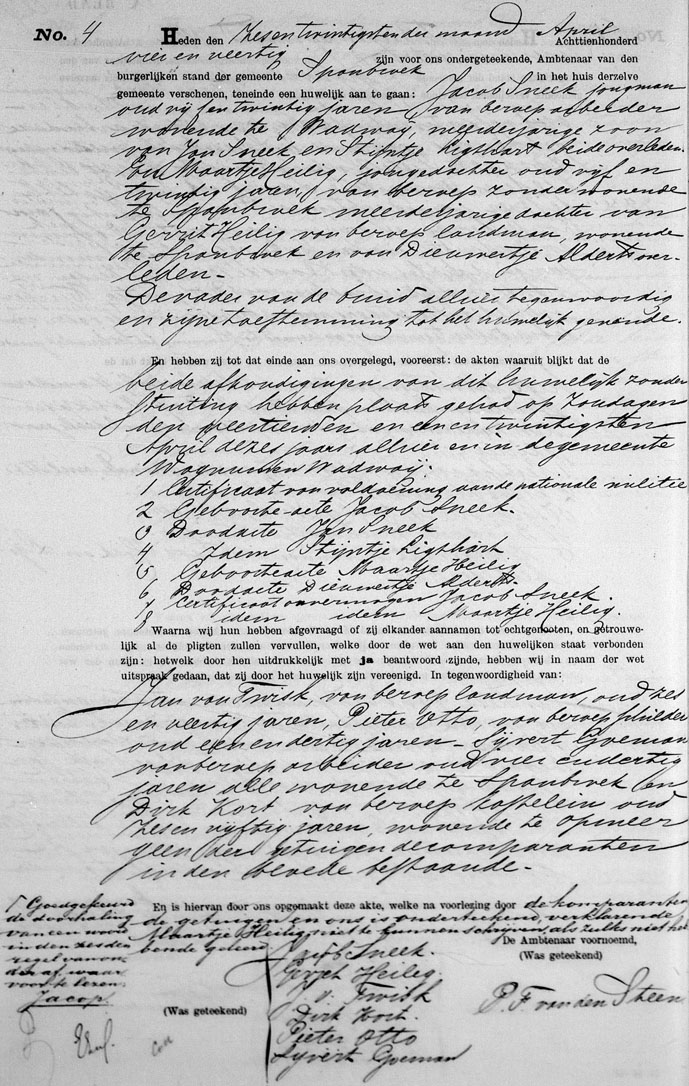 No. 4 Heden den Zesentwintigsten der maand April Achttienhonderd
vier en veertig zijn voor ons ondergeteekende, Ambtenaar van den
burgerlijken stand der gemeente Spanbroek in het huis derzelve
gemeente verschenen, teneinde een huwelijk aan te gaan: Jacob Sneek jongman
oud vijf en twintig jaren, van beroep arbeider
wonende te Wadway, meerderjarige zoon
van Jan Sneek en Stijntje Ligthart beide overleden.
En Maartje Heilig, jongedochter oud vijf en
twintig jaren, van beroep zonder wonende
te Spanbroek meerderjarige dochter van
Gerrit Heilig van beroep landman, wonende
te Spanbroek en van Dieuwertje Alderts over-
leden-
De vader van de bruid alhier tegenwoordig
en zijne toestemming tot het huwelijk gevende.
En hebben zij tot dat einde aan ons overgelegd, vooreerst: de akten waaruit blijkt dat de
beide afkondigingen van dit huwelijk zonder
stuiting hebben plaats gehad op zondagen
den veertienden en een en twintigsten
April dezes jaars alhier en in de gemeente
Wognum en Wadway.
1 Certificaat van voldoening aan de nationale militie
2 Geboorte-acte Jacob Sneek.
3 Doodacte Jan Sneek
4 Idem Stijntje Ligthart
5 Geboorteacte Maartje Heilig
6 Doodacte Dieuwertje Alderts.
7 Certificaat onvermogen Jacob Sneek.
8 idem idem Maartje Heilig.
Waarna wij hun hebben afgevraagd of zij elkander aannamen tot echtgenooten, en getrouwe-
lijk al de pligten zullen vervullen, welke door de wet aan den huwelijken staat verbonden
zijn: hetwelk door hen uitdrukkelijk met ja beantwoord zijnde, hebben wij in naam der wet
uitspraak gedaan, dat zij door het huwelijk zijn vereenigd. In tegenwoordigheid van:
Jan van Twisk, van beroep landman, oud zes
en veertig jaren, Pieter Otto, van beroep schilder
oud een en dertig jaren - Sijvert Goeman
van beroep arbeider oud vier en dertig
jaren alle wonende te Spanbroek en
Dirk Kort van beroep kastelein oud
zes en vijftig jaren, wonende te Opmeer
geen der getuigen de comparanten
in den bloede bestaande.-
En is hiervan door ons opgemaakt deze akte, welke na voorlezing door de komparanten
de getuigen en ons is onderteekend, verklarende
Maartje Heilig niet te kunnen schrijven, als zulks niet heb
bende geleerd.
Goedgekeurd
de doorhaling
van een woord
in den zesden
regel van on
der af, waar
voor te lezen.
Jacop
De Ambtenaar voornoemd,
(Was geteekend)
P. F. van den Steen
(Was geteekend)
Jacob Sneek.
Gerret Heileg.
J. v. Twisk
Dirk Kort.
Pieter Otto
Syvert Goeman